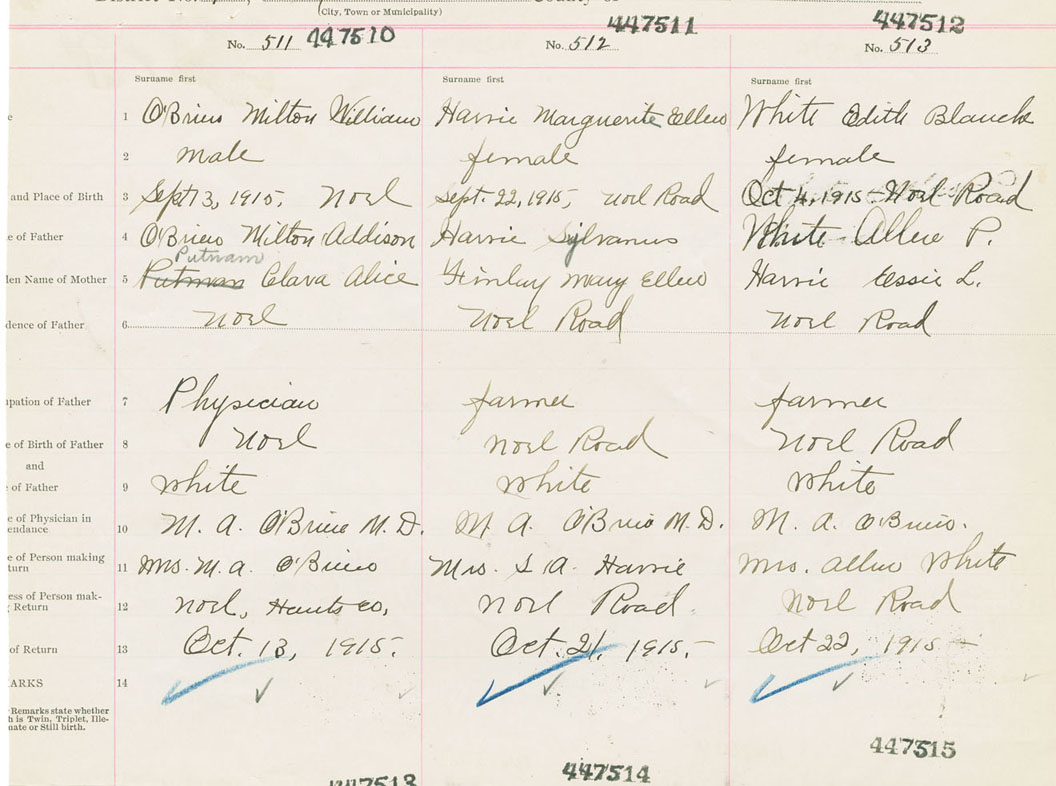 (City, Town or Municipality)
No. 511 447510
No. 512 447511
No. 513 447512
Surname first Surname first Surname first
1 O'Brien Milton William Harvie Marguerite Ellen White Edith Blanche
2 male female female
and Place of Birth 3 Sept 13, 1915, Noel Sept. 22, 1915, Noel Road Oct 4, 1915 - Noel Road
e of Father 4 O'Brien Milton Addison Harvie Sylvanus White Allen P.
Putnam
den Name of Mother 5 Putman Clara Alice Finlay Mary Ellen Harvie Essie L.
dence of Father 6 Noel Noel Road Noel Road
upation of Father 7 Physician farmer farmer
e of Birth of Father 8 Noel Noel Road Noel Road
and
of Father 9 White White White
e of Physician in
endance 10 M. A. O'Brien M.D. M. A. O'Brien M.D. M. A. O'Brien.
e of Person making
turn 11 Mrs. M. A. O'Brien Mrs. S A. Harvie Mrs. Allen White
ess of Person mak-
g Return 12 Noel, Hants Co, Noel Road Noel Road
of Return 13 Oct. 13, 1915. Oct. 21, 1915. Oct 22, 1915
ARKS 14
Remarks state whether
h is Twin, Triplet, Ille-
mate or Still birth.
447513 447514 447515